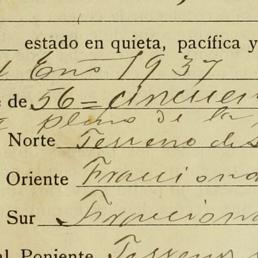 estado en quieta, pacífica y
Eno 1937
e de 56 = cincuen
plano de la
Norte Terreno de
Oriente Fracciona
Sur Fracciona
al Poniente Terreno